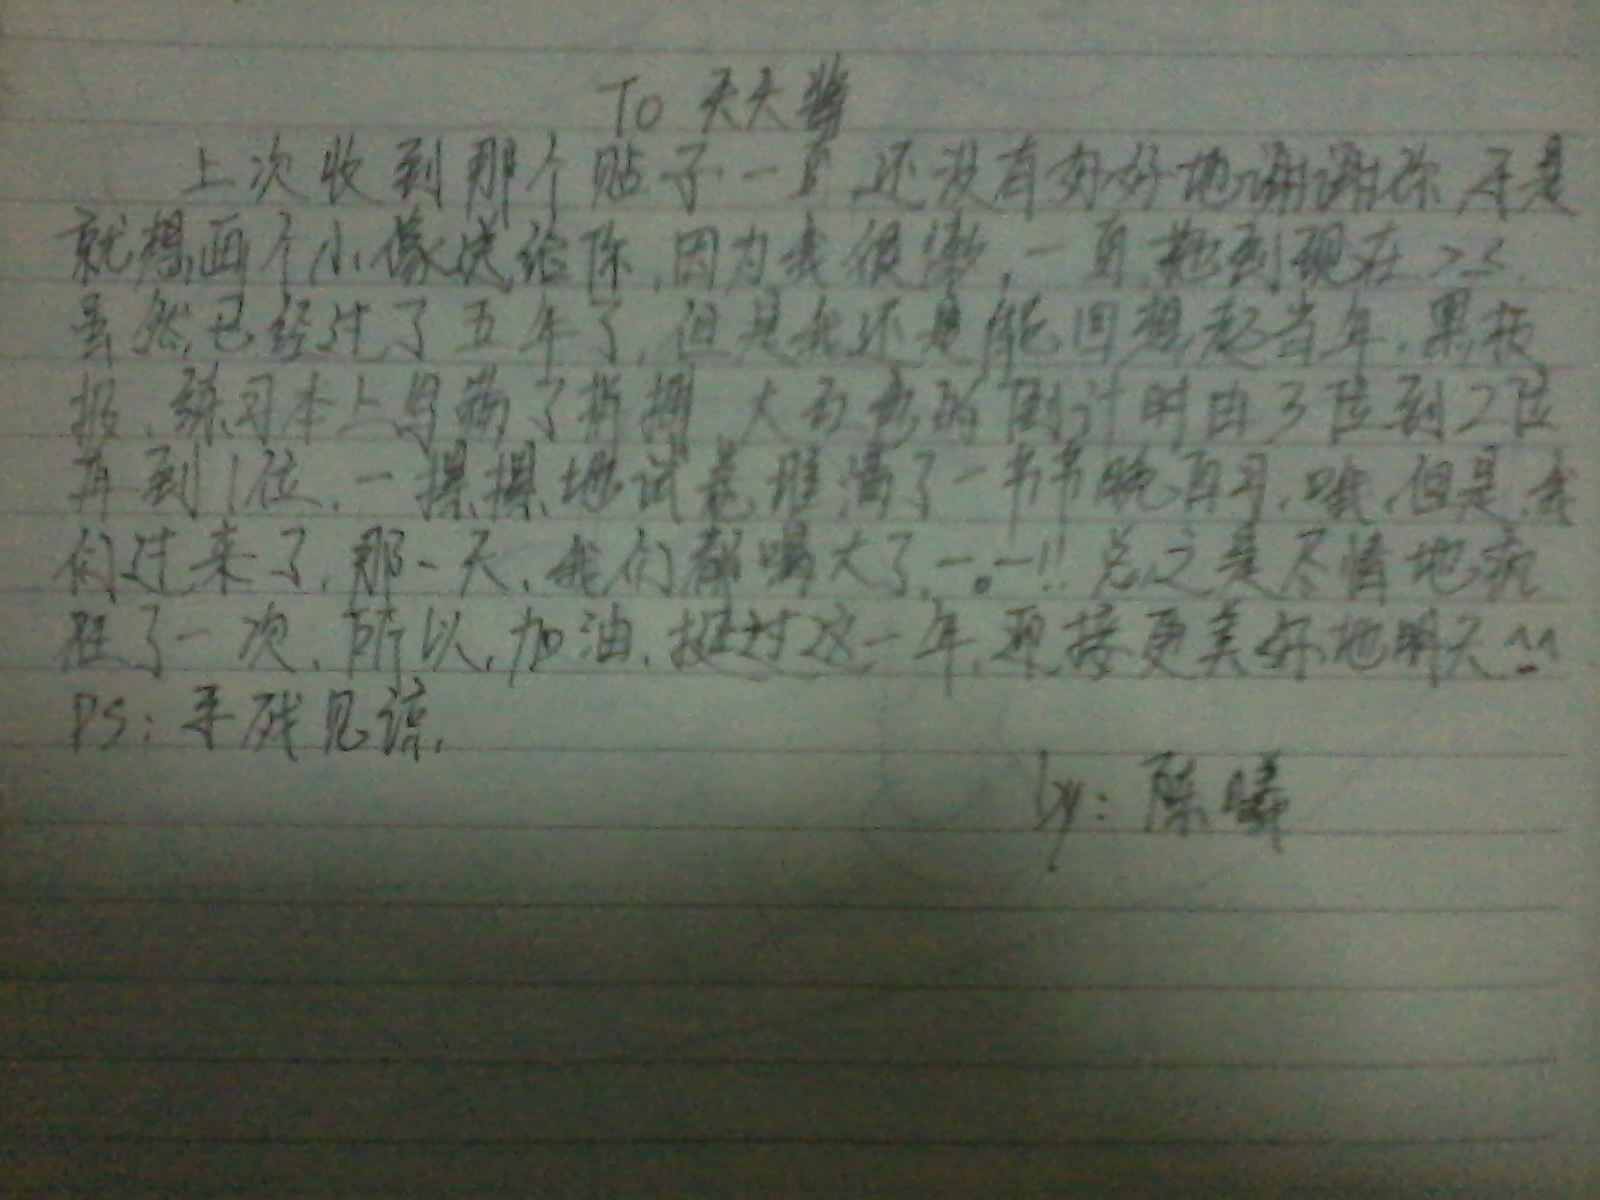 To 天天酱
上次收到那个贴子一直还没有好好地谢谢你 于是
就想画个小像送给你,因为我很懒,一直拖到现在 >.<
虽然已经过了五年了,但是我还是能回想起当年,黑板
报,练习本上写满了 大 的倒计时由3位到2位
再到1位,一摞摞地试卷堆满了一节节晚自习,哦,但是,我
们过来了,那一天,我们都喝大了,一。一!! 总之是尽情地疯
狂了一次,所以,加油,挺过这一年,迎接更美好地明天^_^
PS:手残见谅,
by:陈曦